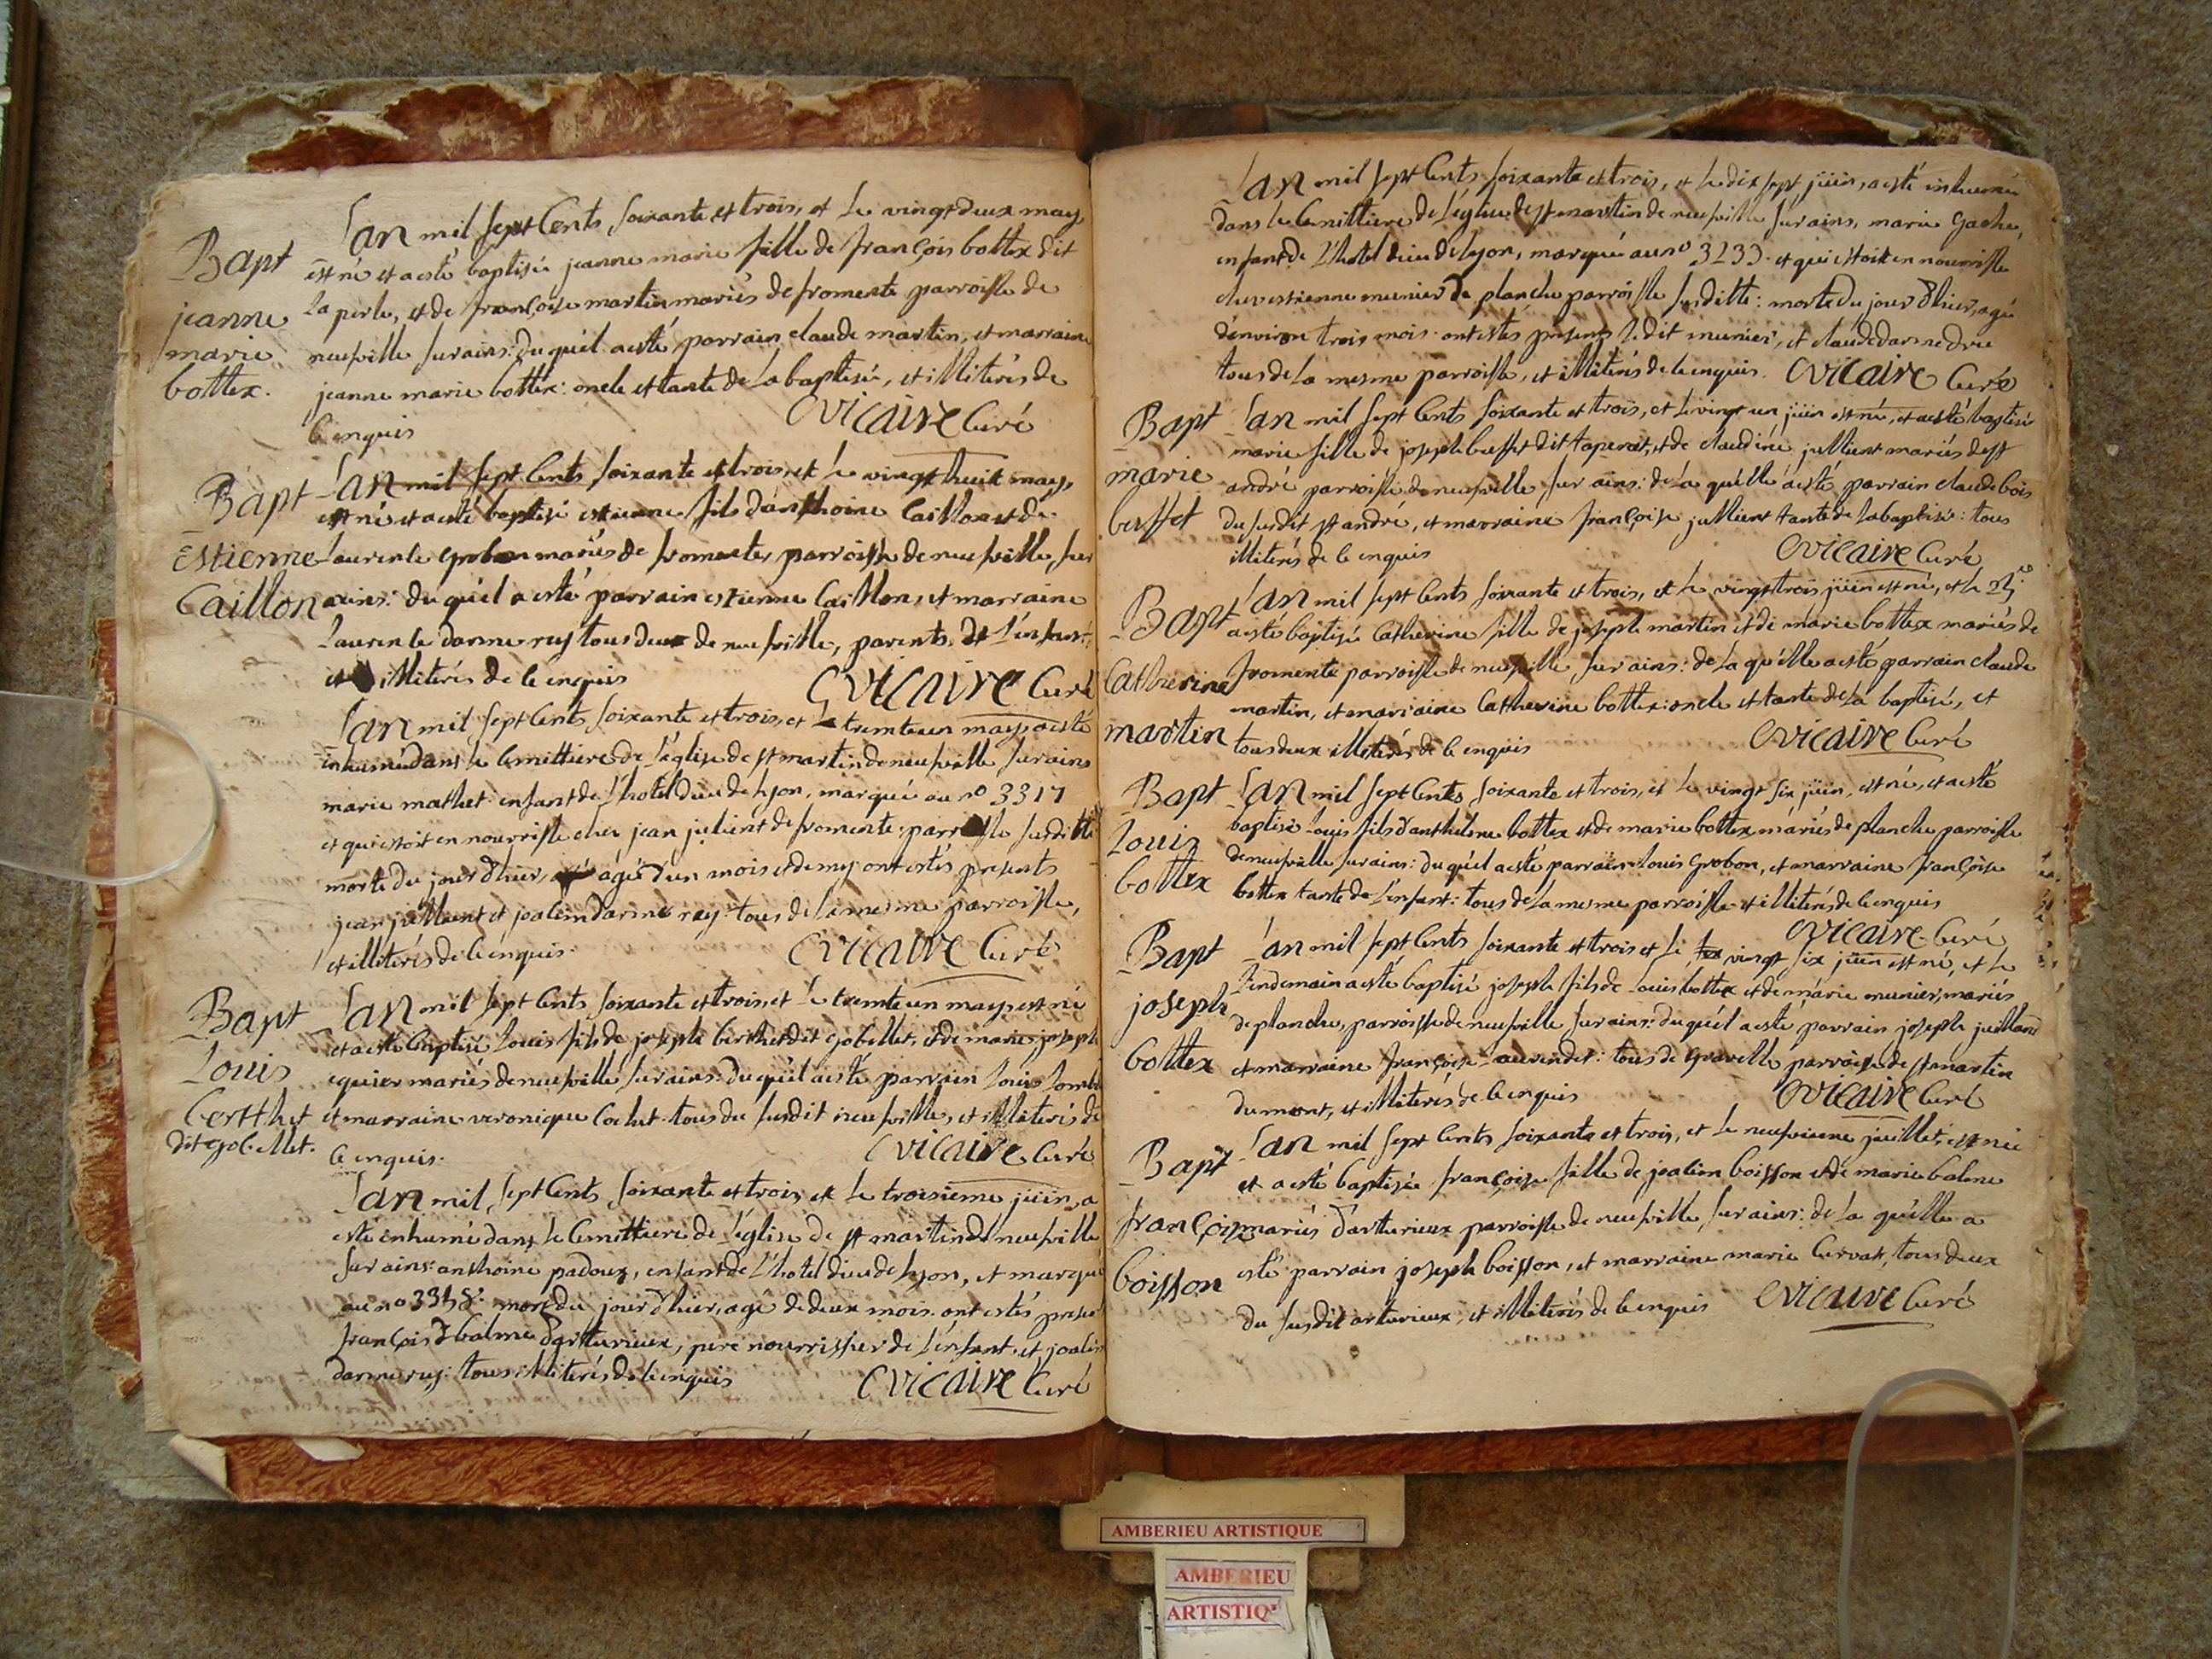 Bapt
jeanne
marie
bottex.
L'an mil sept Cents soixante et trois, et le vingt deux may,
est né et a esté baptisée jeanne marie fille de françois bottex dit
la perle, et de françoise martin mariés de fromente parroisse de
neufville sur ains: du quel a esté parrain claude martin, et marraine
jeanne marie bottex: oncle et tante de la baptisée, et illiterés de
ce enquis
Vicaire Curé
Bapt
Estienne
Caillon
L'an mil sept Cents soixante et trois, et le vingt huit may,
est né et a esté baptisé estienne fils d'anthoine Caillon et de
laurence grobon mariés de fromente, parroisse de neufville, sur
ains: du quel a esté parrain estienne Caillon, et marraine
laurence darmeruy tous deux de neufville, parents de l'enfant:
et illiterés de ce enquis
Vicaire Curé
L'an mil sept Cents soixante et trois, et le trente un may, a esté
inhumé dans le Cemittiere de l'église de st martin de neufville sur ains
marie mathet enfant de l'hotel dieu de lyon, marquée au no 3317
et qui estoit en nourrisse ches jean julient de fromente: parroisse susditte
morte du jour d'hier, agée d'un mois et demy: ont estés presents
jean jullient et joalim darmeray: tous de la mesme parroisse,
et illiterés de ce enquis.
Vicaire Curé
Bapt
Louis
bertthet
dit gobillet.
L'an mil sept Cents soixante et trois, et le trente un may est né
et a esté baptisé Louis fils de joseph berthet dit gobillet, et de marie joseph
equier mariés de neufville sur ains: du quel a esté parrain Louis
et marraine veronique Cochet. tous du susdit neufville, et illiterés de
ce enquis.
Vicaire Curé
L'an mil sept Cents soixante et trois, et le troisieme juin, a
esté inhumé dans le Cemittiere de l'église de st martin de neufville
sur ains: anthoine padoux, enfant de l'hotel dieu de lyon, et marqué
au no mort du jour d'hier, agé de deux mois. ont estés
françois d'balme d'artturieux, pere nourrissier de l'enfant. et joalim
darmeruy: tous illiterés de ce enquis
Vicaire Curé
L'an mil sept Cents soixante et trois, et le dix sept juin, a esté inhumée
dans le Cemittiere de l'église de st martin de neufville sur ains, marie gache,
enfant de l'hotel dieu de lyon, marquée au no 3233. et qui estoit en nourrisse
ches estienne munier de planche parroisse susditte: morte du jour d'hier, agée
d'environ trois mois. ont estés presents ledit munier, et claude
tous de la mesme parroisse, et illiterés de ce enquis. Vicaire Curé
Bapt
marie
buffet
L'an mil sept Cents soixante et trois, et le vingt un juin est née, et a esté baptisée
marie fille de joseph buffet dit taperet, et de claudine jullient mariés de st
andré parroisse de neufville sur ains: de la quelle a esté parrain claude bois
du susdit st andré, et marraine françoise jullient tante de la baptisée: tous
illiterés de ce enquis
Vicaire Curé
Bapt
Catherine
martin
L'an mil sept Cents soixante et trois, et le vingt trois juin est née, et le
a esté baptisée Catherine fille de joseph martin et de marie bottex mariés de
fromente parroisse de neufville sur ains: de la quelle a esté parrain claude
martin, et marraine Catherine bottex: oncle et tante de la baptisée, et
tous deux illiterés de ce enquis
Vicaire Curé
Bapt
Louis
bottex
L'an mil sept Cents soixante et trois, et le vingt six juin, est né, et a esté
baptisé Louis fils d'anthelme bottex et de marie bottex mariés de planche parroisse
de neufville sur ains: du quel a esté parrain Louis grobon, et marraine françoise
bottex tante de l'enfant: tous de la mesme parroisse et illiterés de ce enquis
Vicaire Curé
Bapt
joseph
bottex
L'an mil sept Cents soixante et trois et le vingt six juin est né, et le
lendemain a esté baptisé joseph fils de Louis bottex et de marie munier, mariés
de planche, parroisse de neufville sur ains: du quel a esté parrain joseph juilland
et marraine françoise laurendet: tous de gravelle parroisse de st martin
du mont, et illiterés de ce enquis
Vicaire Curé
Bapt
françoise
boisson
L'an mil sept Cents soixante et trois, et le neufvieme juillet, est née
et a esté baptisée françoise fille de joalim boisson et de marie balme
mariés d'artturieux parroisse de neufville sur ains: de la quelle a
esté parrain joseph boisson, et marraine marie Curvat, tous deux
du susdit artturieux, et illiterés de ce enquis
Vicaire Curé
AMBERIEU ARTISTIQUE
AMBERIEU
ARTISTIQ